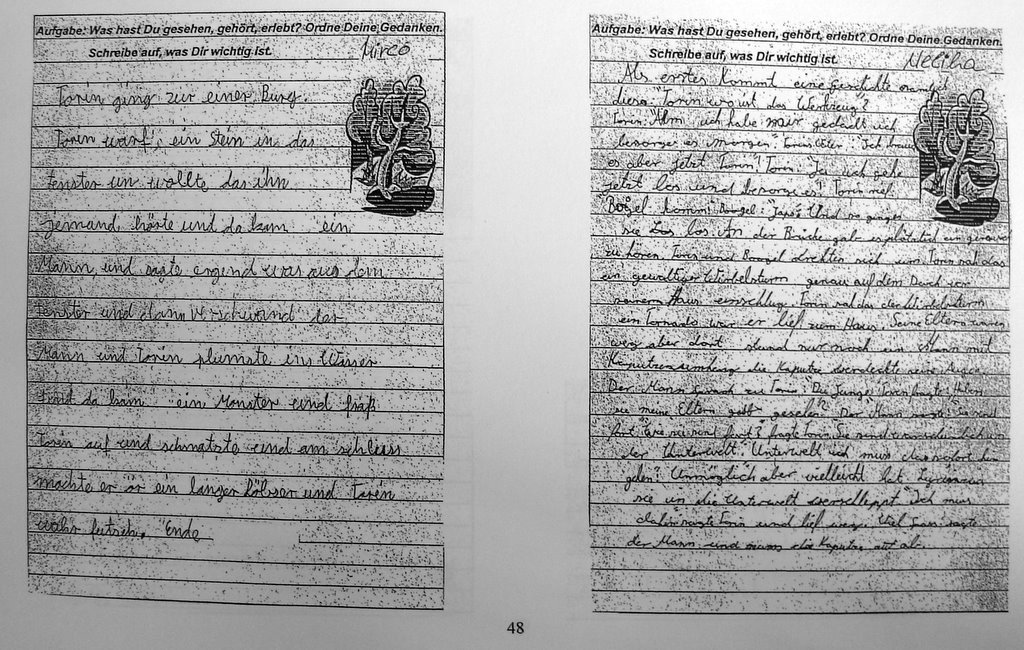 Aufgabe: Was hast Du gesehen, gehört, erlebt? Ordne Deine Gedanken.
Schreibe auf, was Dir wichtig ist. Mirco
Torin ging zur einer Burg.
Toren warf, ein Stein in das
fenster un wollte das ihn
jemand hörte und da kam ein
Mann, und sagte ergend was aus dem
fenster und dann verschwand der
Mann und Toren plumste ins Wasser
Und da kam ein Monster und fraß
Toren auf und schmatzte und am schluss
machte er ein langer und Toren
wahr futsch. Ende
Aufgabe: Was hast Du gesehen, gehört, erlebt? Ordne Deine Gedanken.
Schreibe auf, was Dir wichtig ist. Meliha
Als erstes kommt eine Geschichte
diese "Torin wo ist das Werkzeug?
Torin: "Ähm ich habe mir gedacht ich
besorge es morgen" Torins Eltern: "Ich brauche
es aber jetzt Torin! Torin: "Ja ich gehe
jetzt los und besorge es!" Torin rief
komm!" Und so gingen
sie los. An der Brücke gab es plötzlich ein
zu hören. Torin und drehten sich um. Torin sah das
ein gewaltiger Wirbelsturm genau auf dem Dach von
seinem Haus einschlug. Torin sah das der Wirbelsturm
ein Tornado war er lief zum Haus. Seine Eltern waren
weg aber dort stand nur noch ein Mann mit
die Kaputze verdeckte seine Augen
Der Mann sprach zu Torin "Du Junge" Toren fragte "Haben
sie meine Eltern gesehen?" Der Mann sagte "Sie sind
fort" "Wie sie sind fort?" fragte Torin. Sie sind wahrscheinlich in
der Unterwelt" "Unterwelt ich muss da sofort hin
gehen? Unmöglich aber vielleicht hat
sie in die Unterwelt verschleppt "Ich muss
dahin" sagte Torin und lief weg. Viel sagte
der Mann und nahm die Kaputze ab.
48